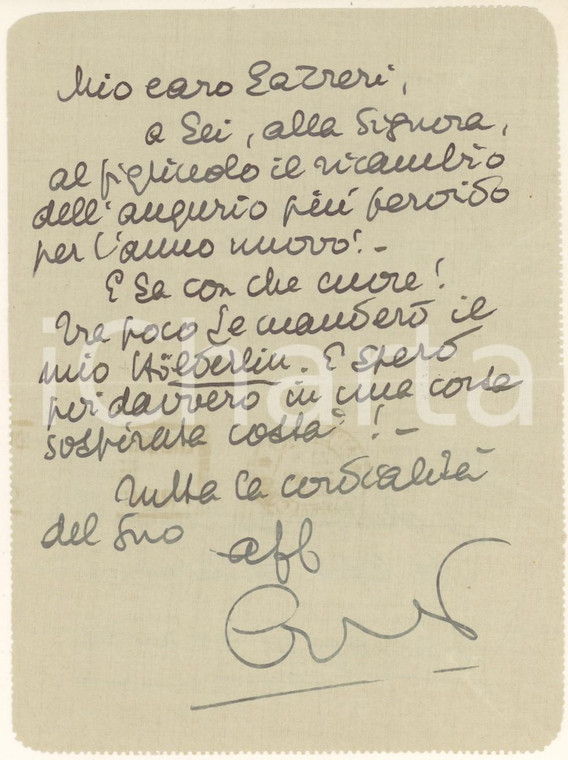 Mio caro Lazzeri,
a Lei, alla Signora,
al figliuolo il ricambio
dell'augurio più fervido
per l'anno nuovo! -
E Sa con che cuore!
Tra poco Le manderò il
mio Hölderlin. E spero
per davvero in una corsa
sospirata costà! -
Tutta la cordialità
del Suo aff
iCharta